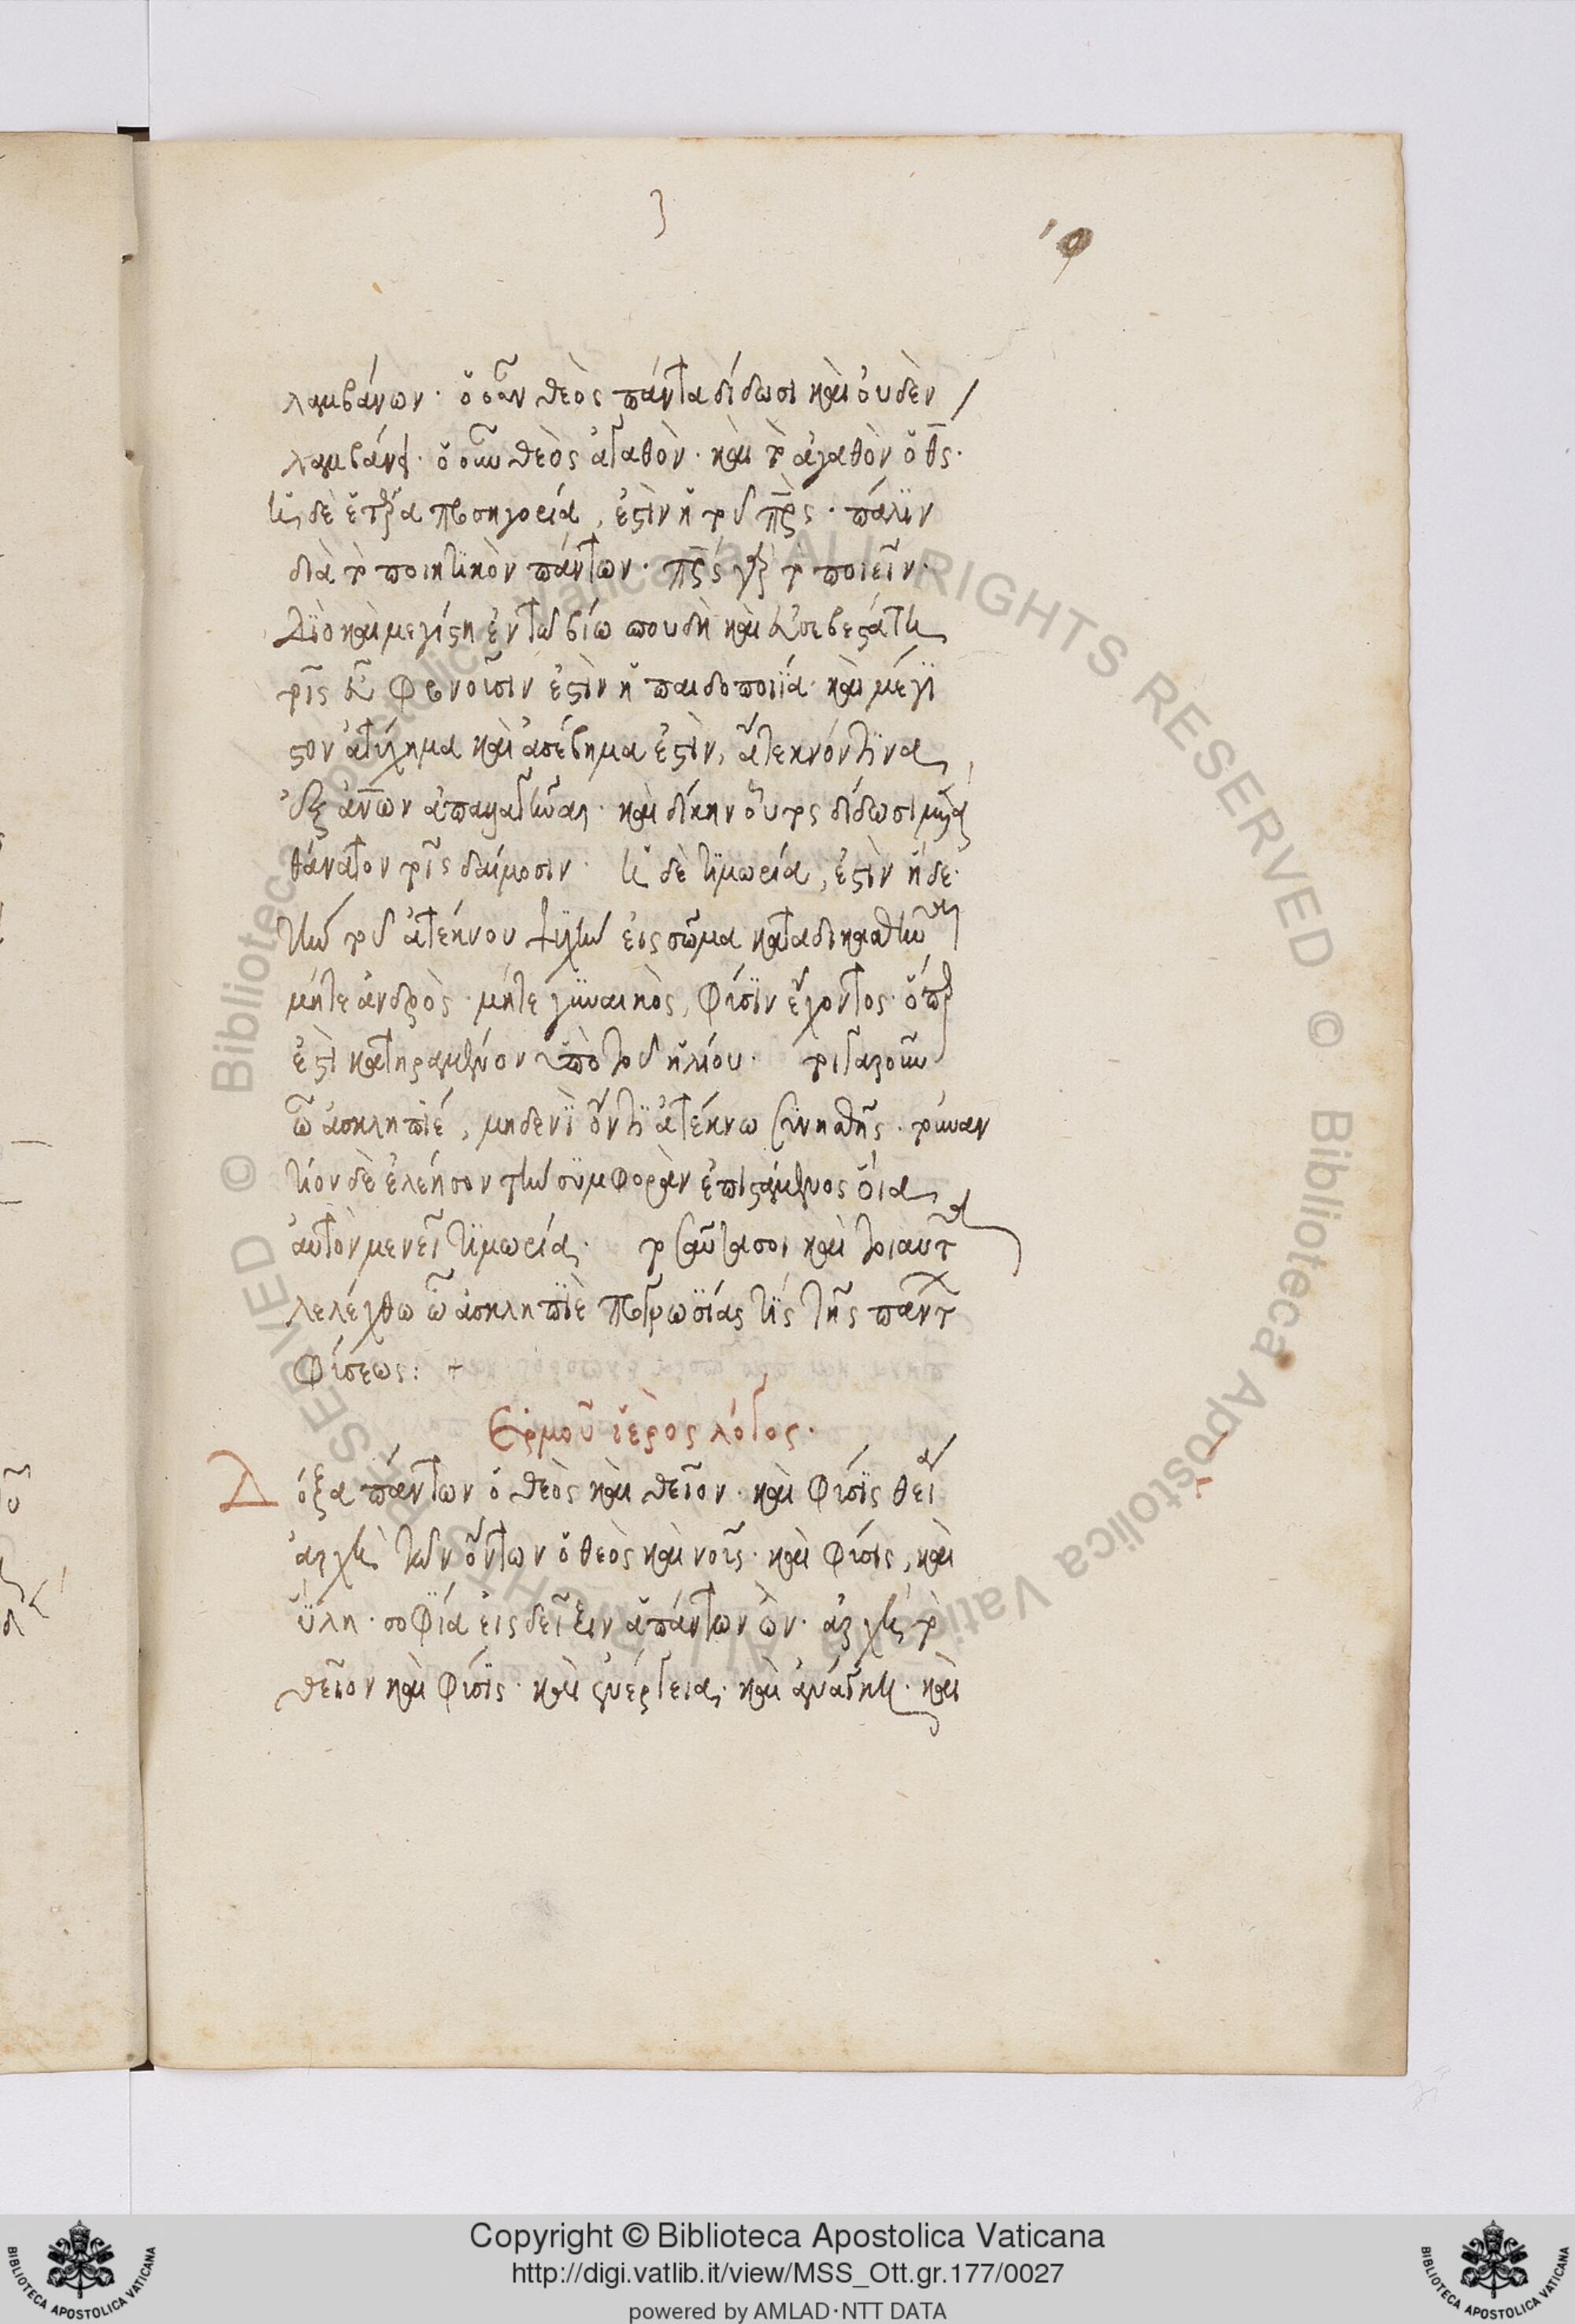 λαμβάνων· ὁ οὖν θεὸς πάντα δίδωσι καὶ οὐδὲν
λαμβάνει· ὁ οὖν θεὸς ἀγαθὸν· καὶ τὸ ἀγαθὸν ὁ θς·
ἡ δὲ ἑτέρα προσηγορία, ἐστὶν ἡ τοῦ πρς· πάλιν
διὰ τὸ ποιητικὸν πάντων· πρς γὰρ τὸ ποιεῖν·
Διὸ καὶ μεγίστη ἐν τῶ βίω σπουδὴ καὶ εὐσεβεστάτη
τοῖς εὖ φρονοῦσιν ἐστὶν ἡ παιδοποιΐα· καὶ μέγι
στον ἀτύχημα καὶ ἀσέβημα ἐστὶν, ἄτεκνόν τινα
ἐξ ἀνων ἀπαλαγῆναι· καὶ δίκην οὗτος δίδωσι μετὰ
θάνατον τοῖς δαίμοσιν· ἡ δὲ τιμωρία, ἐστὶν ἥδε·
τὴν τοῦ ἀτέκνου ψυχὴν εἰς σῶμα καταδικασθῆναι
μήτε ἀνδρὸς· μήτε γυναικὸς, φύσιν ἔχοντος· ὅπερ
ἐστὶ κατηραμένον ὑπὸ τοῦ ἡλίου· τοιγαροῦν
ὦ ἀσκληπιέ, μηδενὶ ὄντι ἀτέκνω συνησθῆς· τοὐναν
τίον δὲ ἐλέησον τὴν συμφορὰν ἐπιστάμενος οἵα
αὐτὸν μένει τιμωρία· τοσαῦτά σοι καὶ τοιαῦτα
λελέχθω ὦ ἀσκληπιὲ προγνωσίας τίς τῆς πάντων
φύσεως: +
Ερμοῦ ἱερὸς λόγος·
Δόξα πάντων ὁ θεὸς καὶ θεῖον· καὶ φύσις θεία
ἀρχὴ τῶν ὄντων ὁ θεὸς καὶ νοῦς· καὶ φύσις, καὶ
ὕλη· σοφία εἰς δεῖξιν ἁπάντων ὢν· ἀρχὴ τὸ
θεῖον καὶ φύσις· καὶ ἐνέργεια· καὶ ἀνάγκη· καὶ
© Biblioteca Apostolica Vaticana ALL RIGHTS RESERVED © Biblioteca Apostolica Vaticana ALL RIGHTS RESERVED
Copyright © Biblioteca Apostolica Vaticana
http://digi.vatlib.it/view/MSS_Ott.gr.177/0027
powered by AMLAD·NTT DATA
BIBLIOTECA APOSTOLICA VATICANA
BIBLIOTECA APOSTOLICA VATICANA